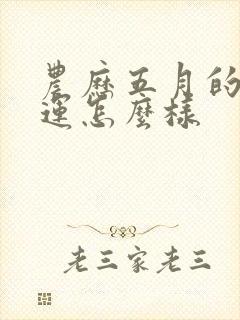 農歷五月的
運怎麼樣
老三家老三